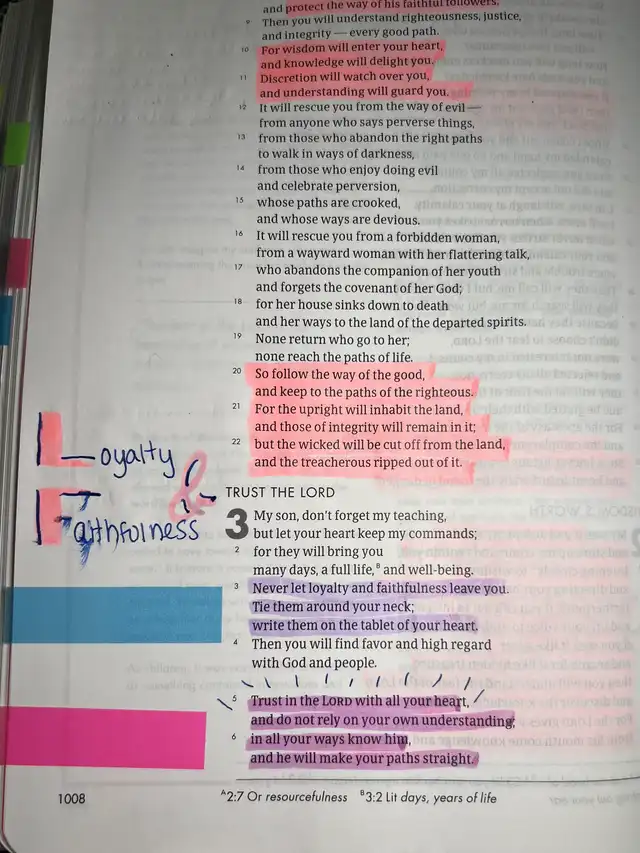 and protect the way of his faithful followers.
9 Then you will understand righteousness, justice,
and integrity — every good path.
10 For wisdom will enter your heart,
and knowledge will delight you.
11 Discretion will watch over you,
and understanding will guard you.
12 It will rescue you from the way of evil —
from anyone who says perverse things,
13 from those who abandon the right paths
to walk in ways of darkness,
14 from those who enjoy doing evil
and celebrate perversion,
15 whose paths are crooked,
and whose ways are devious.
16 It will rescue you from a forbidden woman,
from a wayward woman with her flattering talk,
17 who abandons the companion of her youth
and forgets the covenant of her God;
18 for her house sinks down to death
and her ways to the land of the departed spirits.
19 None return who go to her;
none reach the paths of life.
20 So follow the way of the good,
and keep to the paths of the righteous.
21 For the upright will inhabit the land,
and those of integrity will remain in it;
22 but the wicked will be cut off from the land,
and the treacherous ripped out of it.
Loyalty
&
Faithfulness
TRUST THE LORD
3 My son, don't forget my teaching,
but let your heart keep my commands;
2 for they will bring you
many days, a full life,ᴮ and well-being.
3 Never let loyalty and faithfulness leave you.
Tie them around your neck;
write them on the tablet of your heart.
4 Then you will find favor and high regard
with God and people.
5 Trust in the LORD with all your heart,
and do not rely on your own understanding;
6 in all your ways know him,
and he will make your paths straight.
1008
ᴬ2:7 Or resourcefulness ᴮ3:2 Lit days, years of life